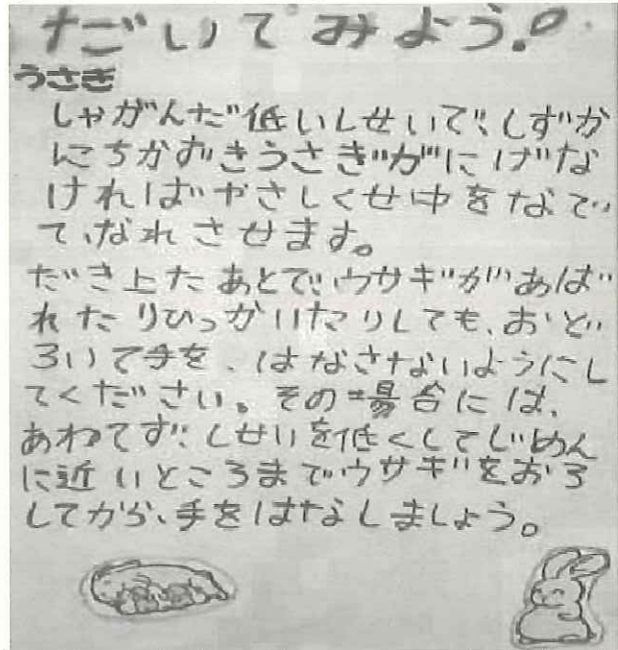 だいてみよう!
うさぎ
しゃがんだ低いしせいで、しずか
にちかずきうさぎがにげな
ければやさしくせ中をなで
て、なれさせます。
だき上たあとで、ウサギがあば
れたりひっかいたりしても、おど
ろいて手を、はなさないようにし
てください。その場合には、
あわてず、しせいを低くしてじめん
に近いところまでウサギをおろ
してから、手をはなしましょう。